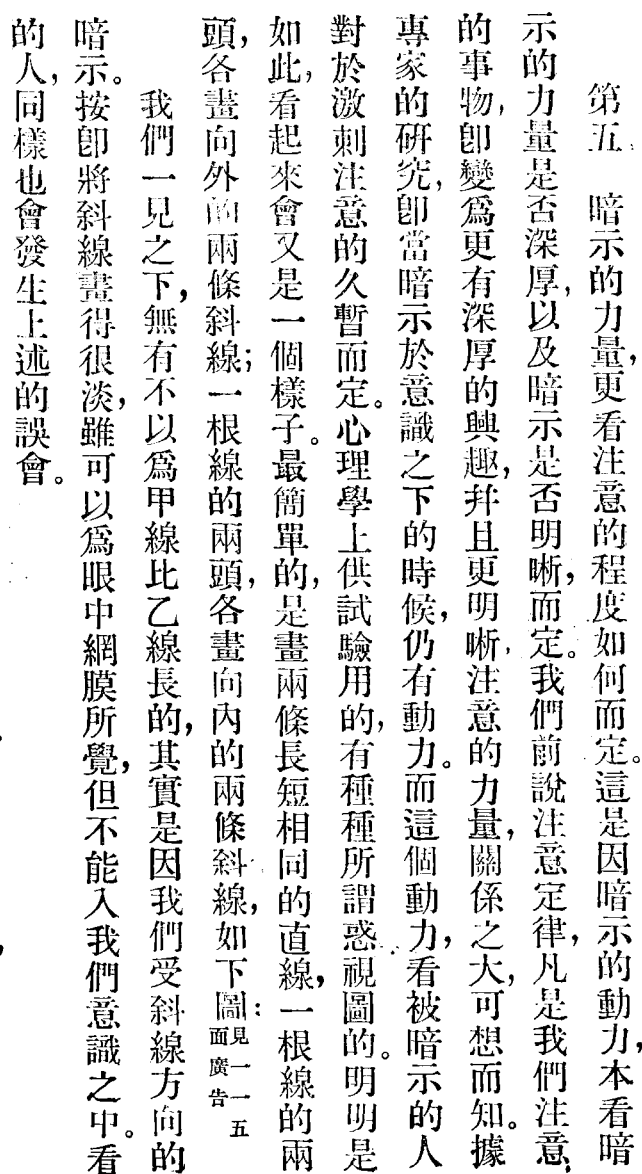 第五　暗示的力量，更看注意的程度如何而定。這是因暗示的動力，本看暗
示的力量是否深厚，以及暗示是否明晰，而定。我們前說注意定律，凡是我們注意
的事物，卽變爲更有深厚的興趣，幷且更明晰，注意的力量，關係之大，可想而知。據
專家的研究，卽當暗示於意識之下的時候，仍有動力。而這個動力，看被暗示的人
對於激刺注意的久暫而定。心理學上供試驗用的，有種種所謂惑視圖的。明明是
如此，看起來會又是一個樣子。最簡單的，是畫兩條長短相同的直線，一根線的兩
頭，各畫向外的兩條斜線；一根線的兩頭，各畫向內的兩條斜線，如下圖：見一一五面廣告
我們一見之下，無有不以爲甲線比乙線長的，其實是因我們受斜線方向的
暗示。按卽將斜線畫得很淡，雖可以爲眼中網膜所覺，但不能入我們意識之中。看
的人，同樣也會發生上述的誤會。